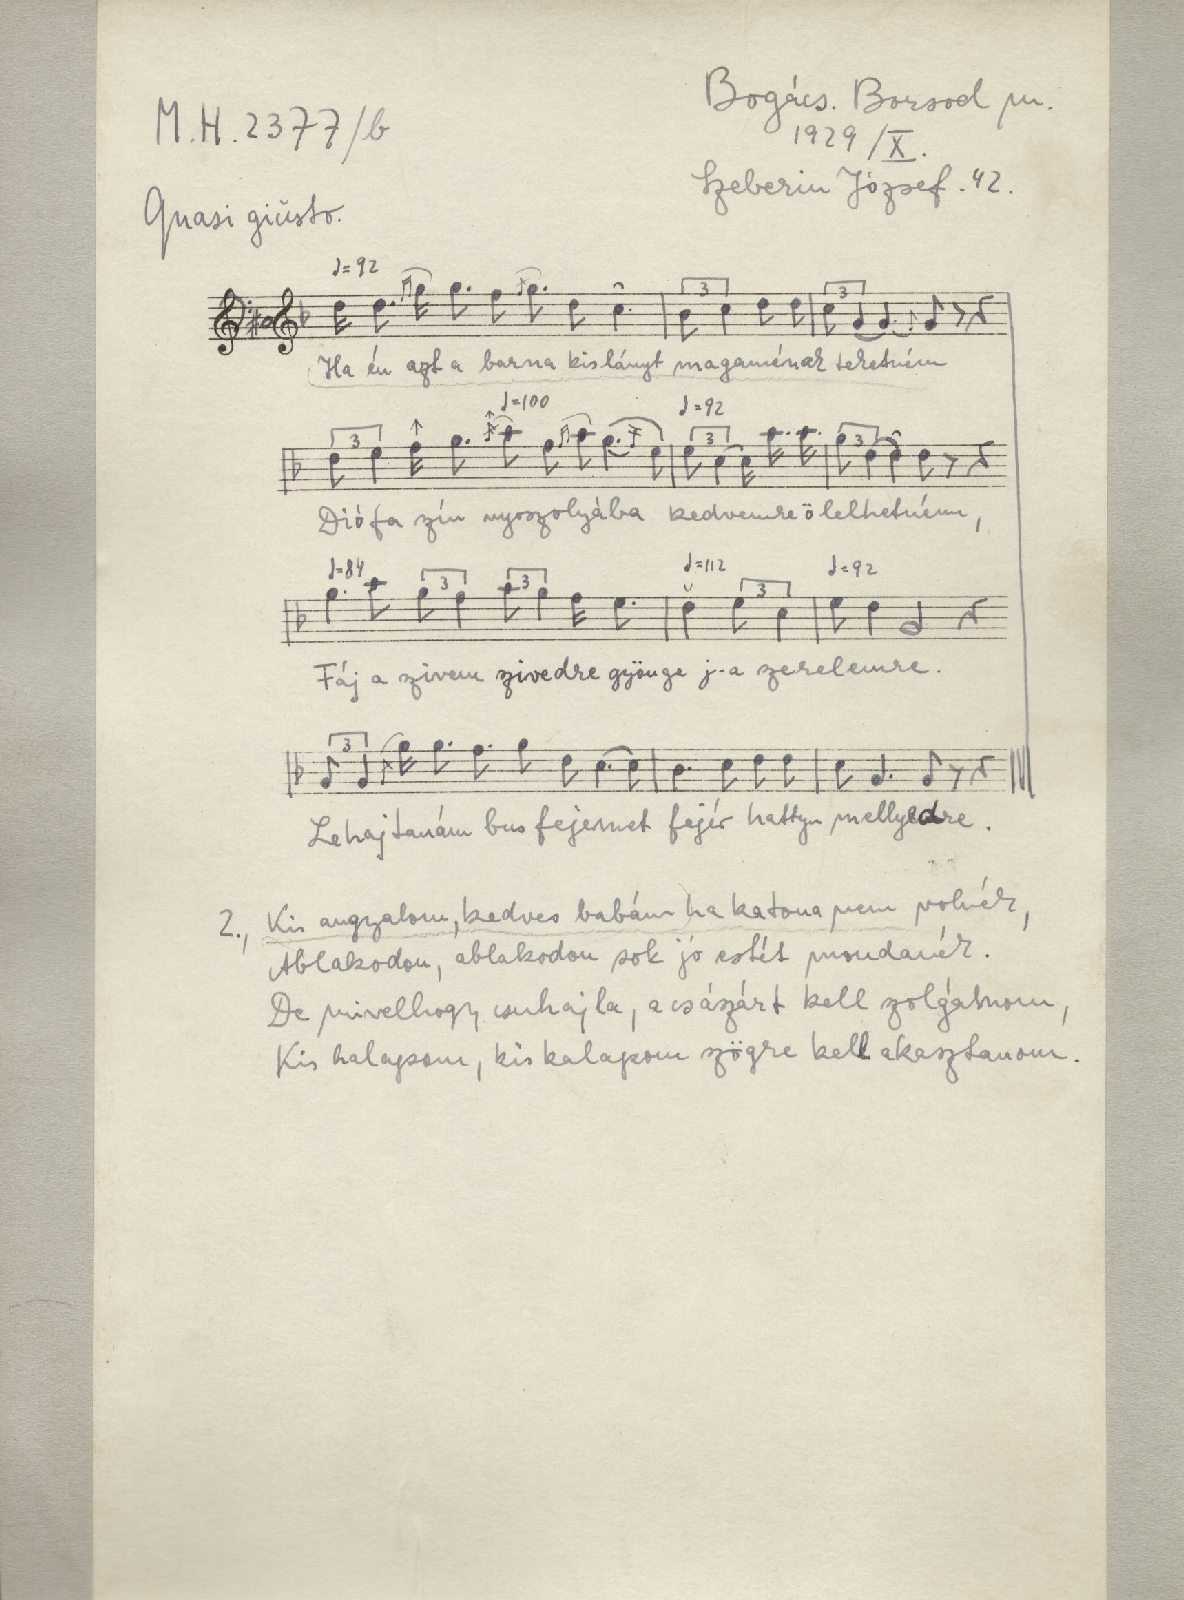 M.H. 2377/b
Bogács. Borsod m.
1929/X.
Szeberin József. 42.
Quasi giusto.
♩=92
3 3
Ha én azt a barna kislányt magaménak teketném
♩=100 ♩=92
3 3 3
Diófa zín nyoszolyába kedvemre ölelhetném,
♩=84 ♩=112 ♩=92
3 3 3
Fáj a zivem zivedre gyönge j-a zerelemre.
3
Lehajtanám bus fejemet fejér hattyu mellyedre.
2., Kis angyalom, kedves babám ha katona nem volnék,
Ablakodon, ablakodon sok jó estét mondanék.
De mivelhogy csuhajla, a császárt kell zolgálnom,
Kis kalapom, kis kalapom szögre kell akasztanom.